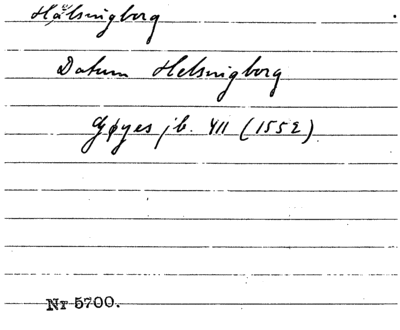 Hälsingborg
Datum Helsingborg
Gøyes jb. 411 (1552)
Nr 5700.